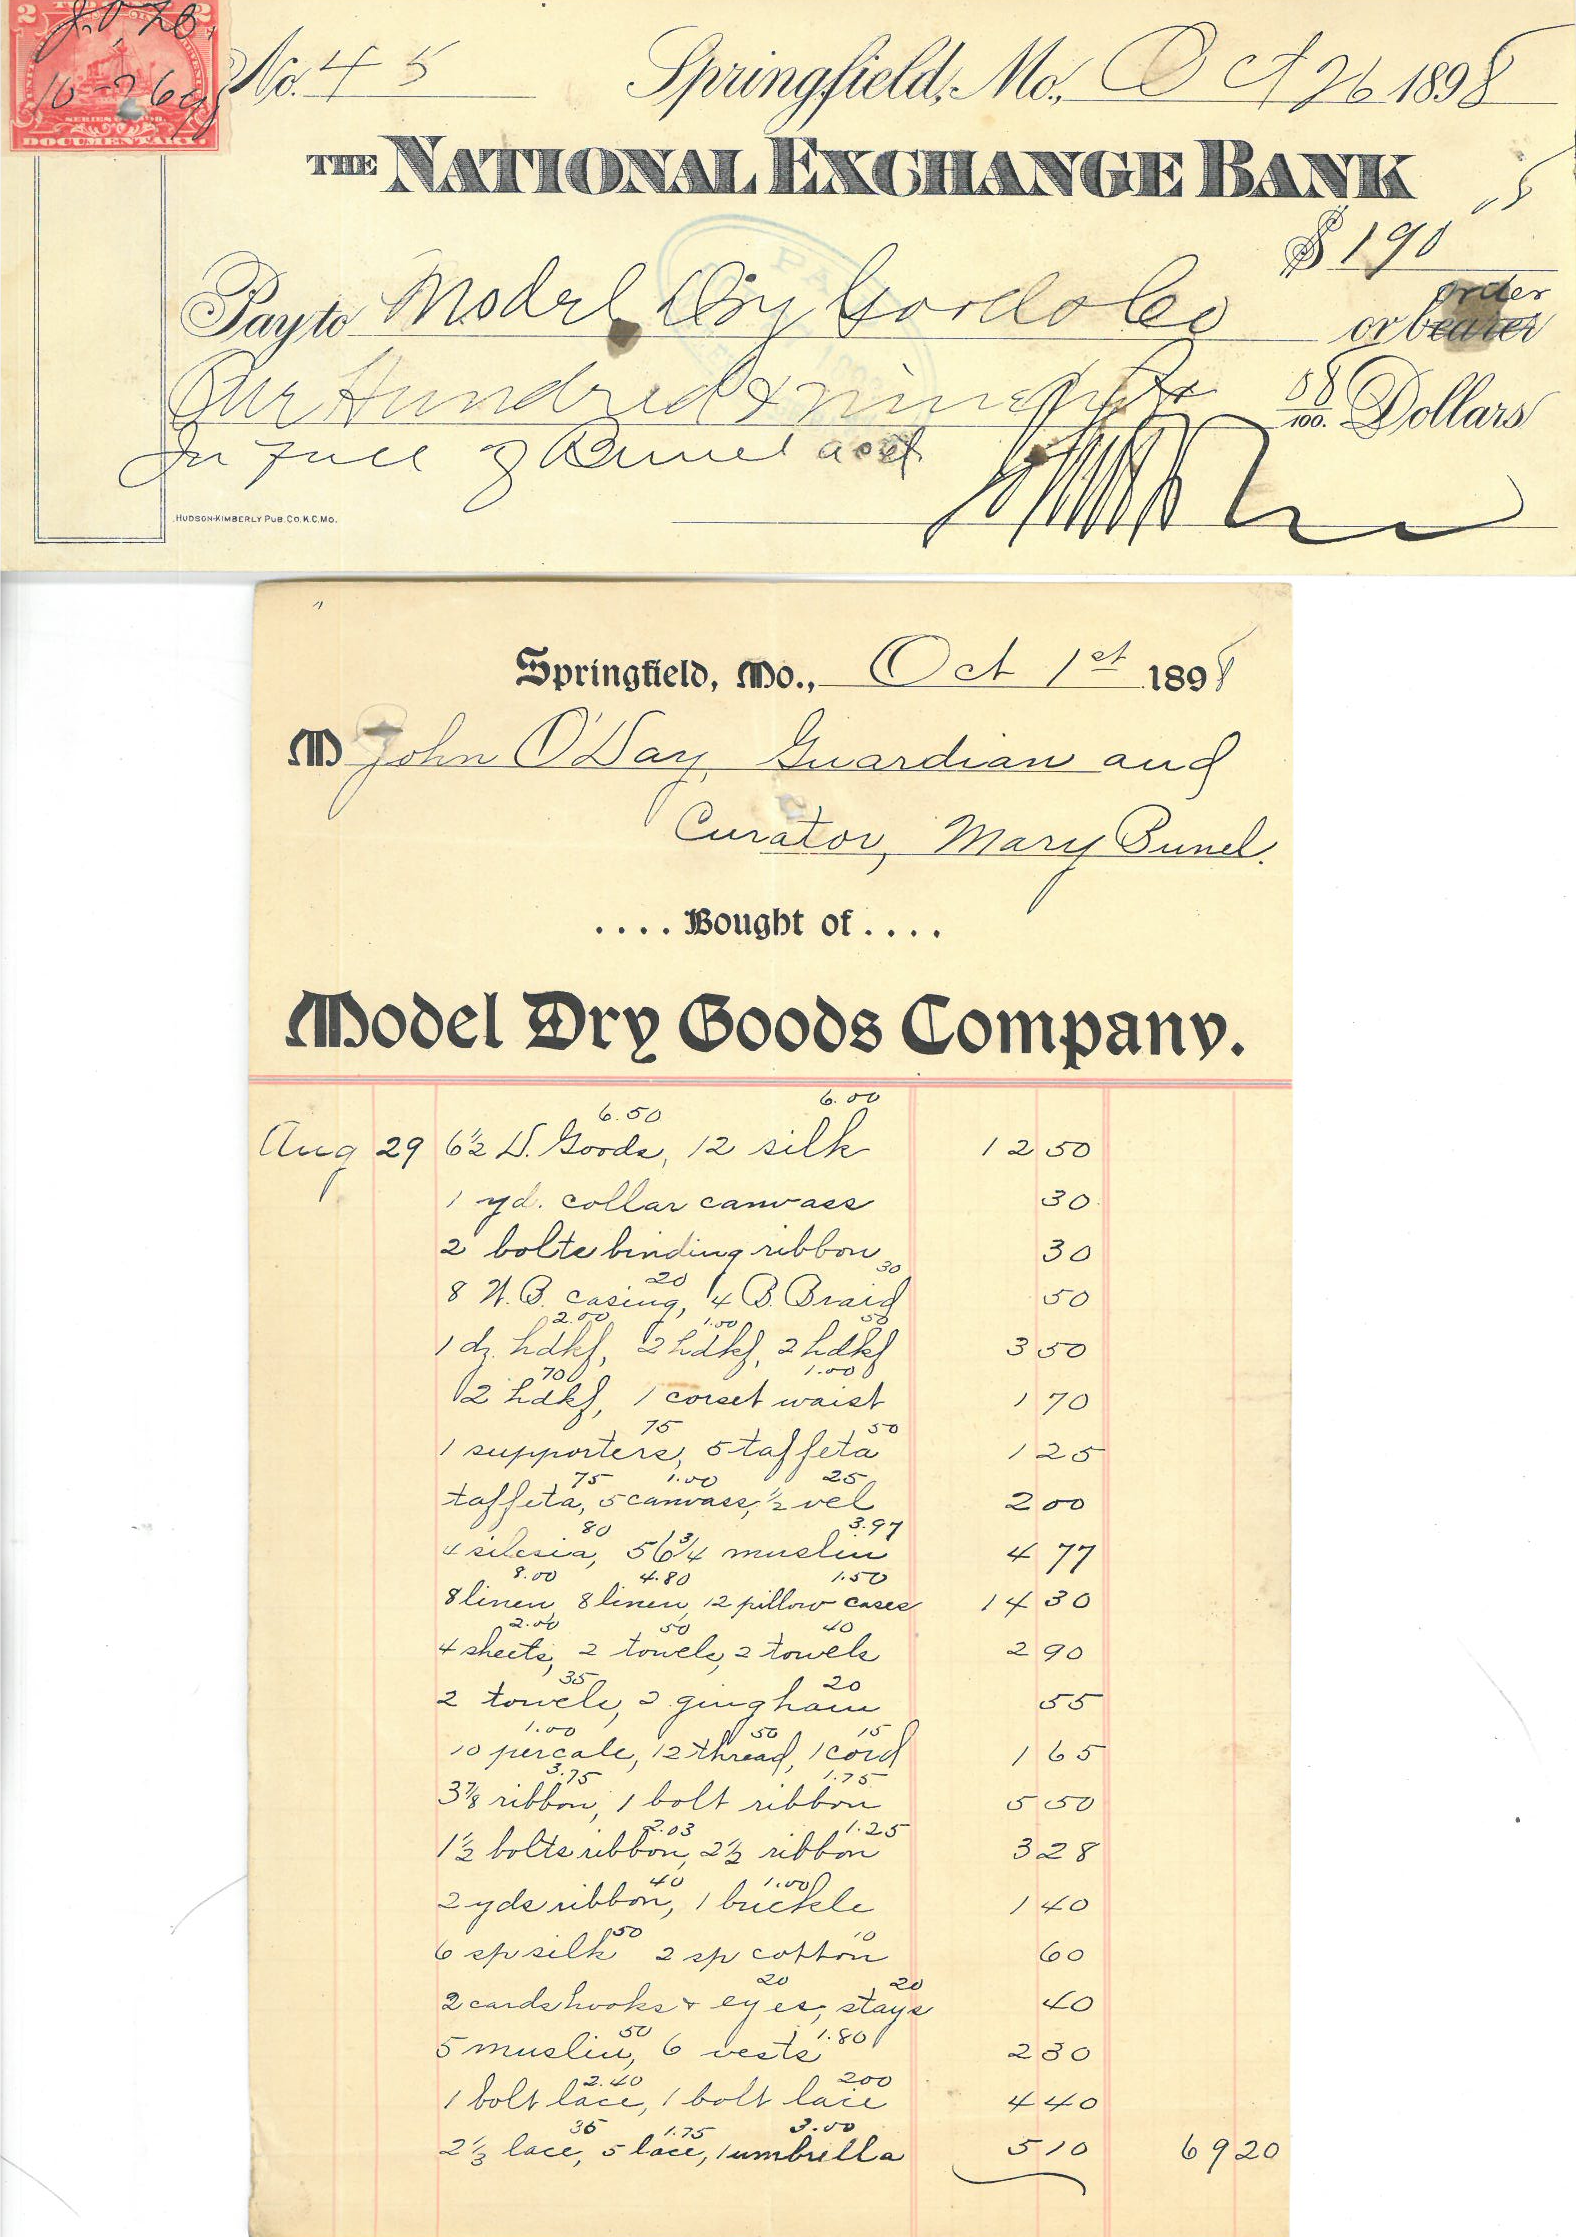 2 2
J. O'D.
10-26-98
SERIES OF 1898
DOCUMENTARY.
No. 45 Springfield, Mo., Oct 26 1898
THE NATIONAL EXCHANGE BANK
$190 58
Pay to Model Dry Goods Co or bearer
order
One Hundred & ninety 58/100. Dollars
In full of Bunel acct.
HUDSON-KIMBERLY PUB. CO. K.C. MO.
Springfield, Mo., Oct 1st 1898
M John O'Day, Guardian and
Curator, Mary Bunel.
.... Bought of ....
Model Dry Goods Company.
6.50 6.00
Aug 29 6½ D. Goods, 12 silk 12 50
1 yd. collar canvass 30
2 bolts binding ribbon 30
20 30
8 W.B. casing, 4 B. Braid 50
2.00 1.00 50
1 dz. hdkf, 2 hdkf, 2 hdkf 3 50
70 1.00
2 hdkf, 1 corset waist 1 70
75 50
1 supporters, 5 taffeta 1 25
75 1.00 25
taffeta, 5 canvass, ½ vel 2 00
80 3.97
4 silesia, 56¾ muslin 4 77
8.00 4.80 1.50
8 linen, 8 linen, 12 pillow cases 14 30
2.00 50 40
4 sheets, 2 towels, 2 towels 2 90
35 20
2 towels, 2 gingham 55
1.00 50 15
10 percale, 12 thread, 1 cord 1 65
3.75 1.75
3⅞ ribbon, 1 bolt ribbon 5 50
2.03 1.25
1½ bolts ribbon, 2½ ribbon 3 28
40 1.00
2 yds ribbon, 1 buckle 1 40
50 10
6 sp silk 2 sp cotton 60
20 20
2 cards hooks & eyes, stays 40
50 1.80
5 muslin, 6 vests 2 30
2.40 200
1 bolt lace, 1 bolt lace 4 40
35 1.75 3.00
2⅓ lace, 5 lace, 1 umbrella 5 10 69 20